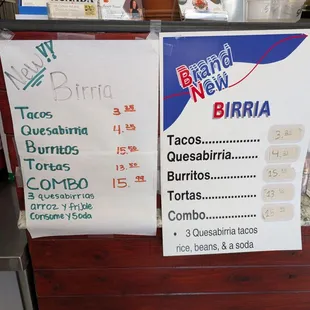 New!!
Birria
Tacos 3.25
Quesabirria 4.25
Burritos 15.50
Tortas 13.50
COMBO 15.99
3 quesabirrias
arroz y frijole
consume y soda
Brand
New
BIRRIA
Tacos
Quesabirria
Burritos
Tortas
Combo
• 3 Quesabirria tacos
rice, beans, & a soda